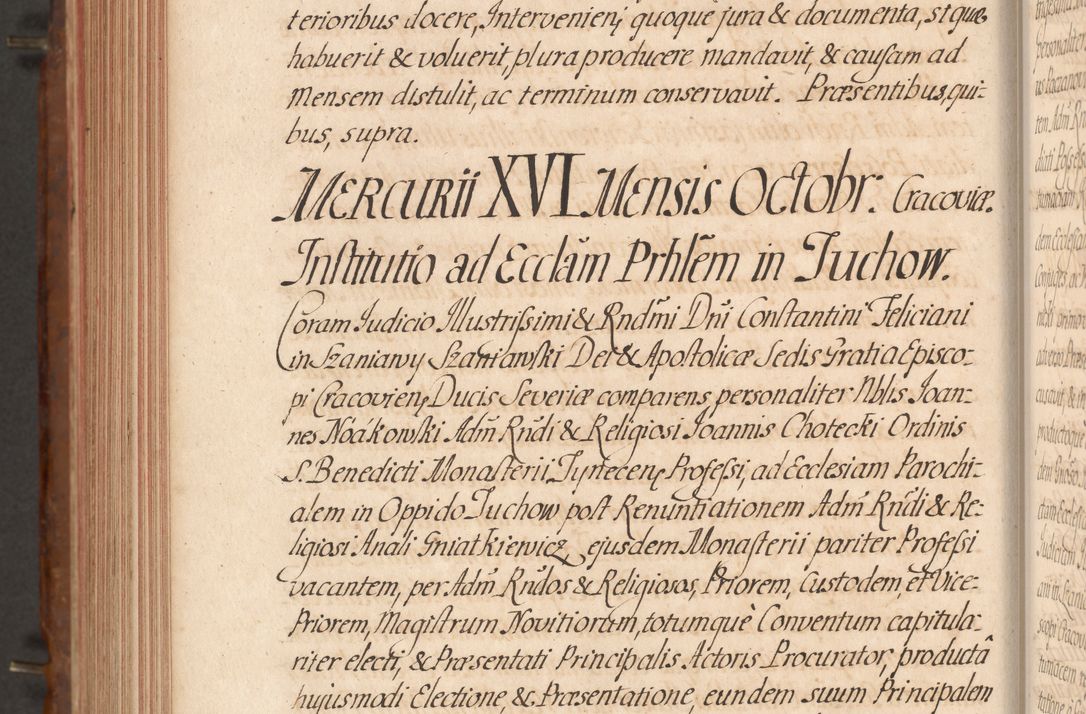 terioribus docere, Intervenienţ quoque jura & documenta, si quæ
habuerit & voluerit, plura producere mandavit, & causam ad
Mensem distulit, ac terminum conservavit. Præsentibus, qui-
bus, supra.
MERCURii XVI Mensis Octobr: Cracoviæ.
Institutio ad Ecclãm Prhlẽm in Tuchow.
Coram Judicio Illustrissimi & Rndm̃i Dñi Constantini Feliciani
in Szaniawy Szaniawski Dei & Apostolicæ Sedis Gratia Episco-
pi Cracovienţ Ducis Severiæ comparens personaliter Nblis Joan-
nes Noákowski Adm̃ Rñdi & Religiosi Joannis Chotecki Ordinis
S. Benedicti Monasterii Tynecenţ Professi, ad Ecclesiam Parochi-
alem in Oppido Tuchow post Renuntiationem Adm̃ Rñdi & Re-
ligiosi Anali Gniatkiewicz ejusdem Monasterii pariter Professi
vacantem, per Adm̃ Rñdos & Religiosos, Priorem, Custodem, et Vice-
Priorem, Magistrum Novitiorum, totumquè Conventum capitula-
riter electi, & Præsentati Principalis Actoris Procurator, productâ
hujusmodi Electione, & Præsentatione, eundem suum Principalem